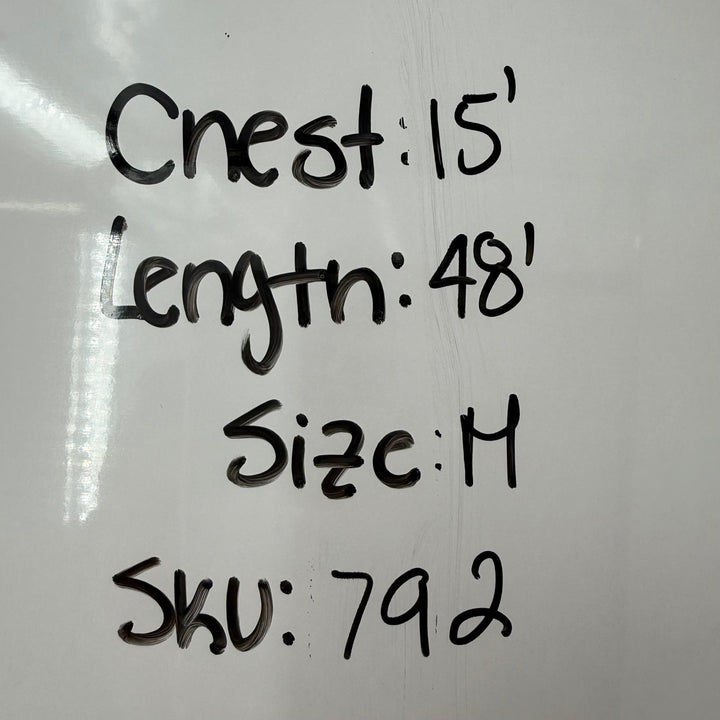 Chest: 15'
Length: 48'
Size: M
SKU: 792